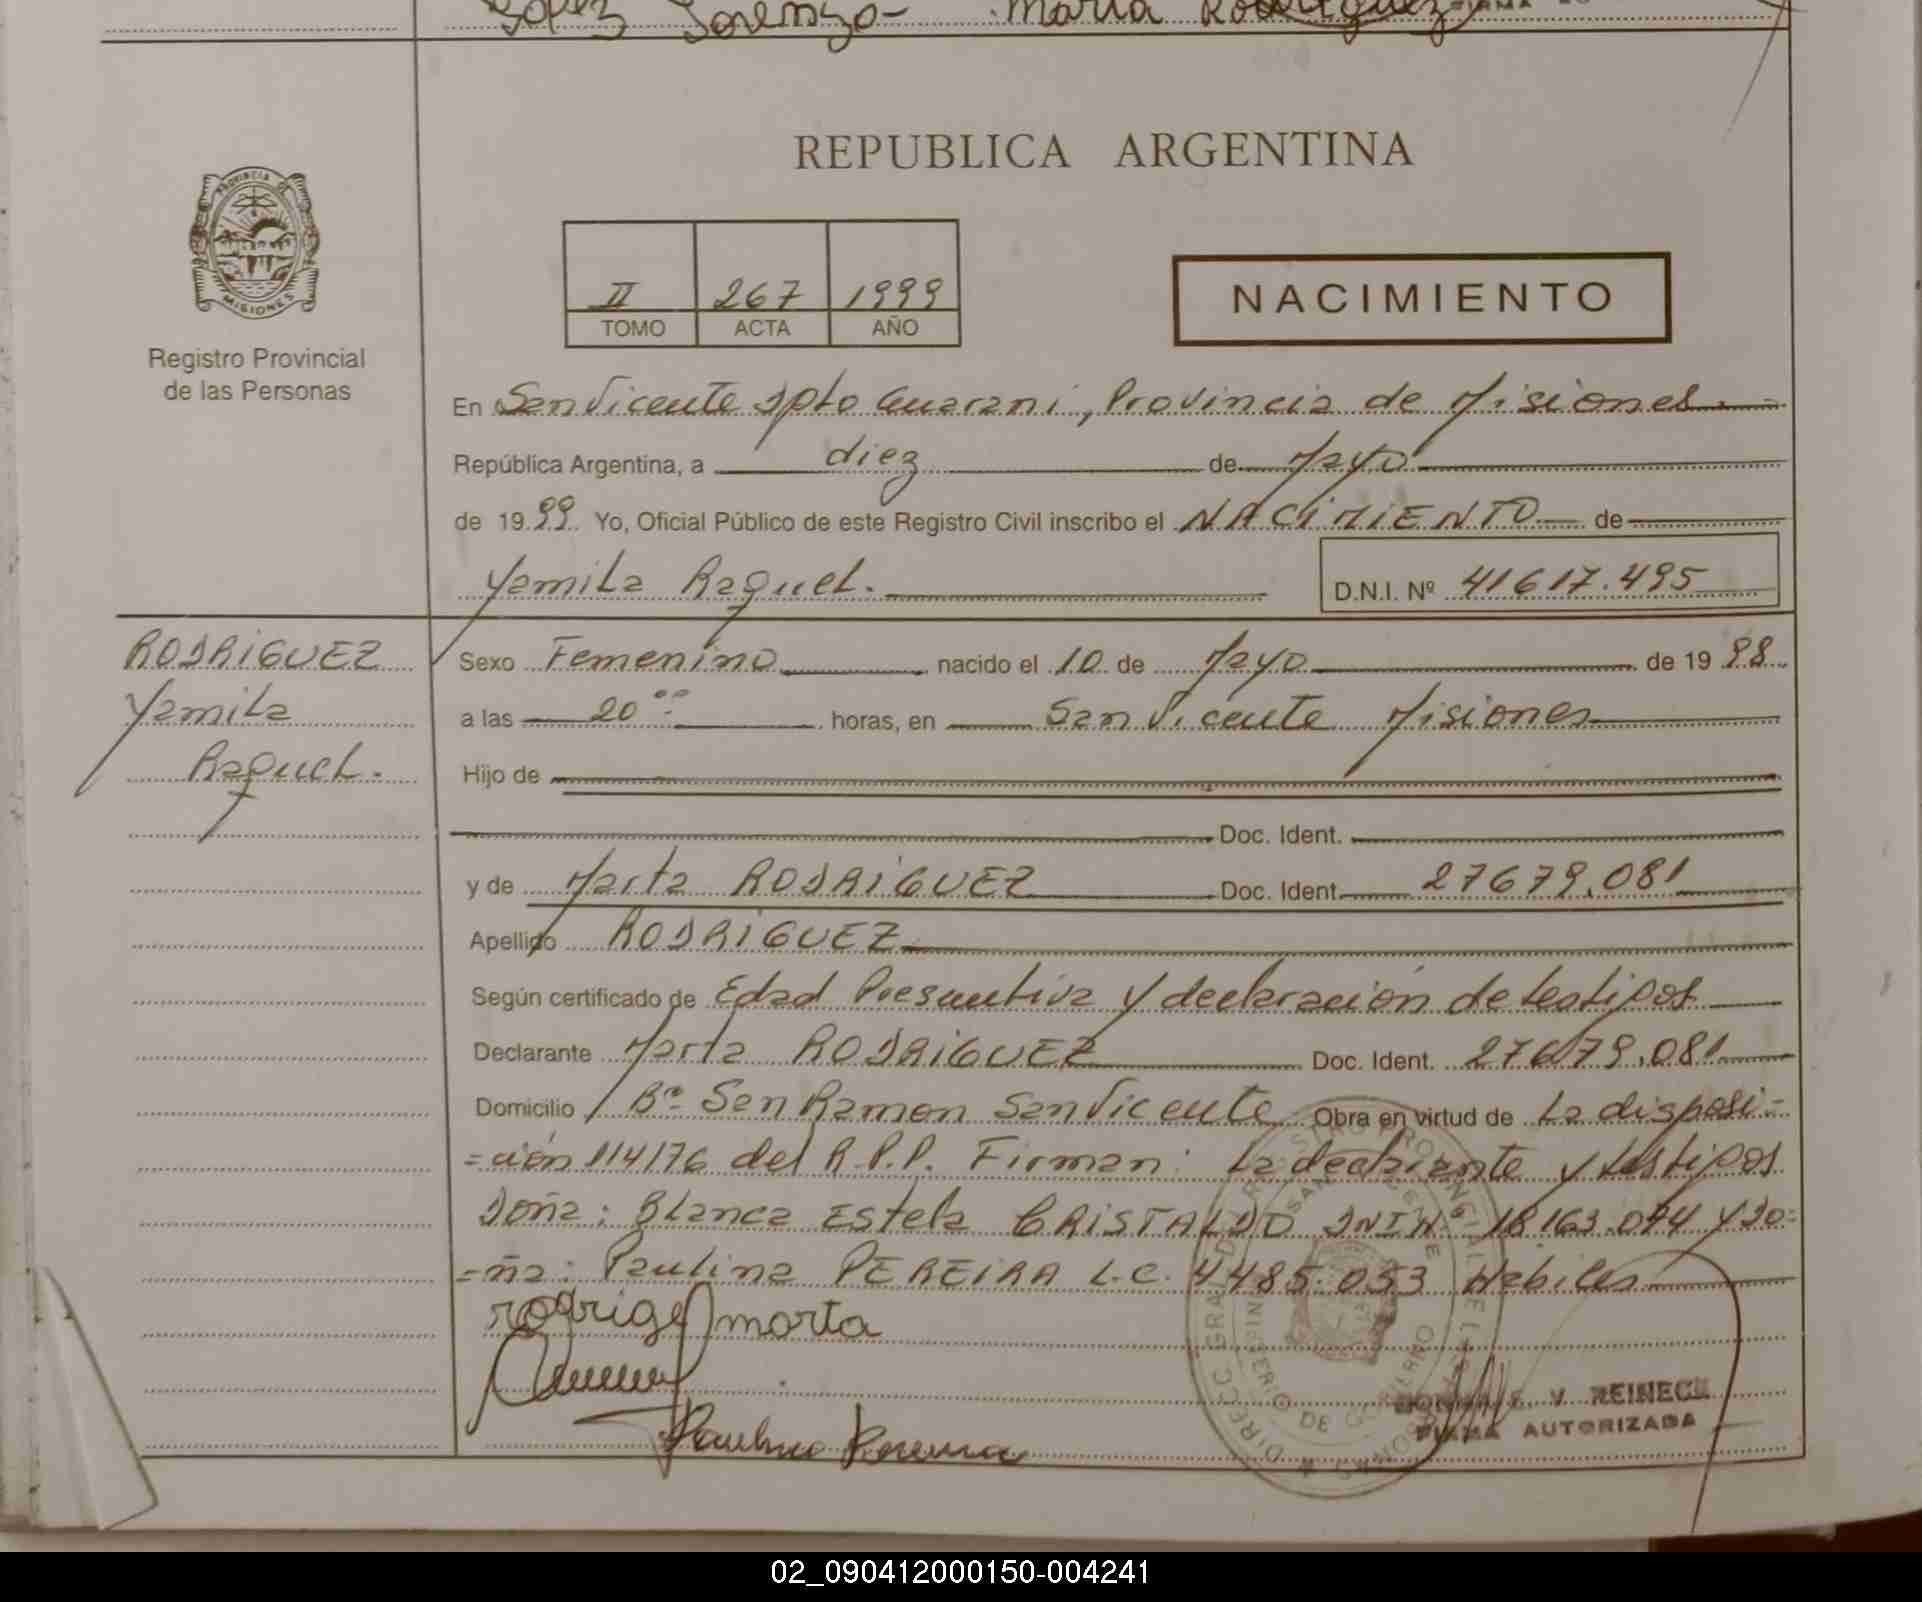 López Lorenzo- Maria Rodriguez
REPUBLICA ARGENTINA
PROVINCIA DE
MISIONES
Registro Provincial
de las Personas
II 267 1999
TOMO ACTA AÑO
NACIMIENTO
En San Vicente Dpto Guarani, Provincia de Misiones.
República Argentina, a diez de Mayo
de 1999 Yo, Oficial Público de este Registro Civil inscribo el NACIMIENTO de
Yamila Raquel. D.N.I. Nº 41617.495
RODRIGUEZ
Yamila
Raquel.
Sexo Femenino nacido el 10 de Mayo de 1998
a las 20:00 horas, en San Vicente Misiones
Hijo de
Doc. Ident.
y de Marta RODRIGUEZ Doc. Ident. 27679.081
Apellido RODRIGUEZ
Según certificado de Edad Presuntiva y declaración de testigos
Declarante Marta RODRIGUEZ Doc. Ident. 27679.081
Domicilio Bº San Ramon San Vicente Obra en virtud de La disposi=
=ción 114176 del R.P.P. Firman: La declarante y testigos
Doña: Blanca Estela CRISTALDO DNIN° 18.163.074 y Do=
=ña: Paulina PEREIRA L.C. 4485.053 Habiles
rodrige marta
Paulina Pereira
V. REINECK
FIRMA AUTORIZADA
02_090412000150-004241